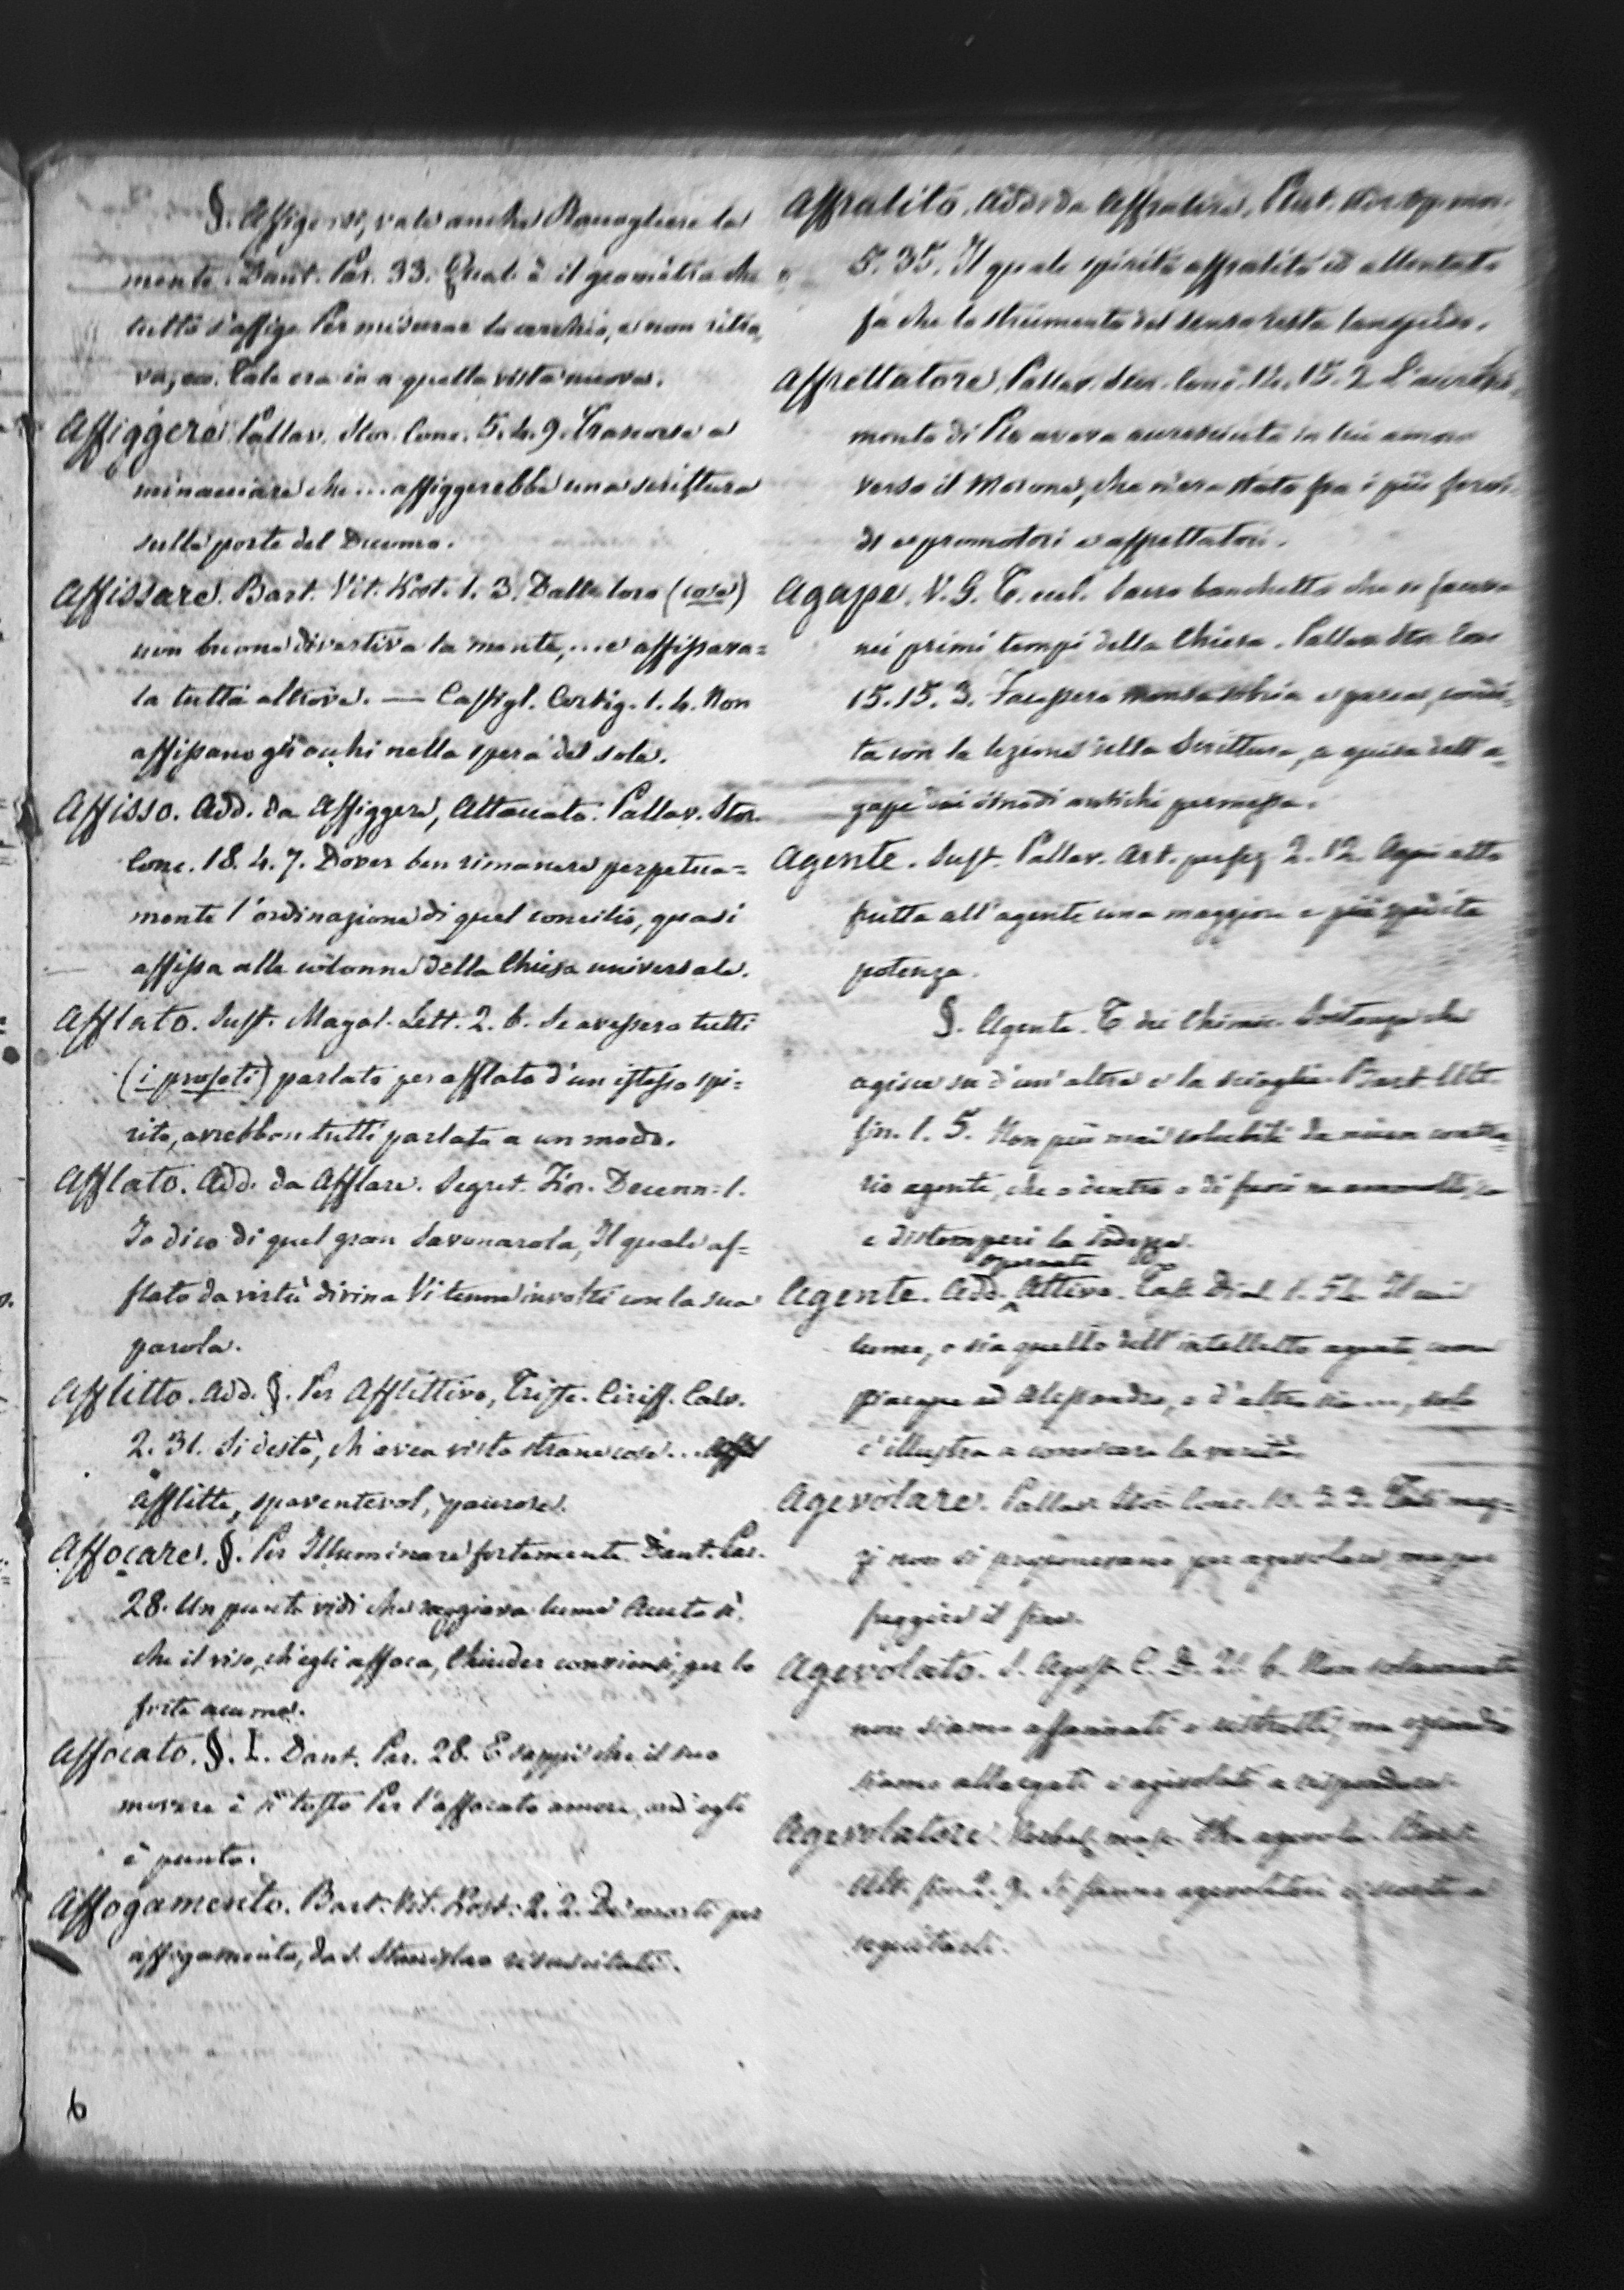 §. Affigersi, vale anche Raccogliere la
mente. Dant. Par. 33. Qual è il geomètra che
tutto s'affige Per misurar lo cerchio, e non ritro,
va, ec. Tale era io a quella vista nuova.
Affiggere. Pallav. Stor. Conc. 5. 4. 9. Trascorse a
minacciare che... affiggerebbe una scrittura
sulle porte del Duomo.
Affissare. Bart. Vit. Kost. 1. 3. Dalle loro (cose)
non buone divertiva la mente,... e affissava=
la tutta altrove. — Castigl. Cortig. 1. 4. Non
affissano gli occhi nella spera del sole.
Affisso. Add. da Affiggere, Attaccato. Pallav. Stor.
Conc. 18. 4. 7. Dover ben rimanere perpetua=
mente l'ordinazione di quel concilio, quasi
affissa alle colonne della Chiesa universale.
Afflato. Sust. Magal. Lett. 2. 6. Se avessero tutti
(i profeti) parlato per afflato d'un istesso spi=
rito, avrebbon tutti parlato a un modo.
Afflato. Add. da Afflare. Segret. Fior. Decenn. 1.
Io dico di quel gran Savonarola, Il quale af=
flato da virtù divina Vi tenne involti con la sua
parola.
Afflitto. Add. §. Per Afflittivo, Triste. Ciriff. Calv.
2. 31. Si destò, ch'avea visto strane cose...
Afflitte, spaventevol, paurose.
Affocare. §. Per Illuminare fortemente. Dant. Par.
28. Un punto vidi che raggiava lume Acuto sì,
che il viso, ch'egli affoca, Chiuder conviensi, per lo
forte acume.
Affocato. §. I. Dant. Par. 28. E sappi che il suo
movere è sì tosto Per l'affocato amore, ond'egli
è punto.
Affogamento. Bart. Vit. Kost. 2. 2. De' morti per
affogamento, da S. Stanislao risuscitati.
6
Affralito. Add. da Affralire.
5. 35. Il quale spirito affralito ed allentato
fa che lo strumento del senso resta languido.
Affrettatore. Pallav. Stor. Conc. 14. 15. 2. L'accresci=
mento di Pio aveva accresciuto in lui amore
verso il Morone, che n'era stato fra i più fervi=
di e promotori e affrettatori.
Agape. V. G. T. eccl. Sacro banchetto che si faceva
nei primi tempi della Chiesa. Pallav. Stor. Conc.
15. 15. 3. Facessero mensa sobria e parca, condi=
ta con la lezione della Scrittura, a guisa dell'a=
gape ne' sinodi antichi permessa.
Agente. Sust. Pallav. Art. perfez. 2. 12. Ogni atto
frutta all'agente una maggiore e più spedita
potenza.
§. Agente. T. dei Chimic. Sostanza che
agisce su d'un'altra e la scioglie. Bart. Ult.
fin. 1. 5. Non più mai solubili da niun contra=
rio agente, che o dentro o di fuori ne ammollisca
e distemperi la sodezza.
Agente. Add. Operante Attivo. Tass. Dial. 1. 54. Il cui
lume, o sia quello dell'intelletto agente, come
piacque ad Alessandro, o d'altro sia..., solo
c'illustra a conoscere la verità.
Agevolare. Pallav. Stor. Conc. 10. 2 2. Tali mez=
zi non si proponevano per agevolare, ma per
fuggire il fine.
Agevolato. S. Agost. C. D. 21. 6. Non solamente
non siamo affannati e ristretti, ma
siamo allargati e agevolati a rispondere.
Agevolatore. Verbal. masc. Che agevola. Bart.
Ult. fin. 2. 9. Si fanno agevolatori